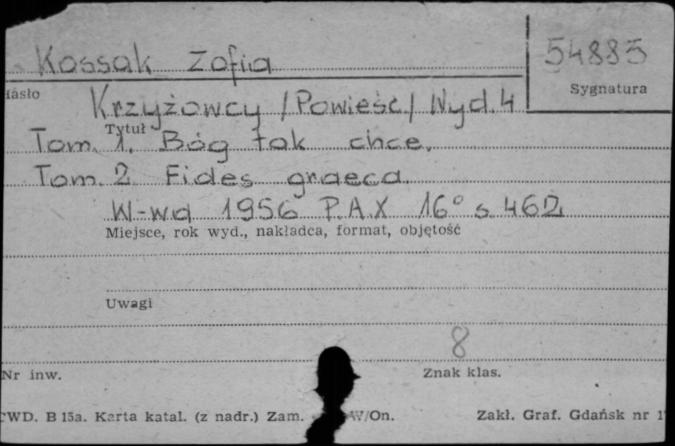 Kossak Zofia
54885
Sygnatura
Hasło
Krzyżowcy /Powieść/ Wyd. 4
Tytuł
Tom. 1. Bóg tak chce.
Tom. 2 Fides graeca
W-wa 1956 P.A.X 16° s. 462
Miejsce, rok wyd., nakładca, format, objętość
Uwagi
8
Nr inw.
Znak klas.
WD. B 15a. Karta katal. (z nadr.) Zam. W/On. Zakł. Graf. Gdańsk nr 1